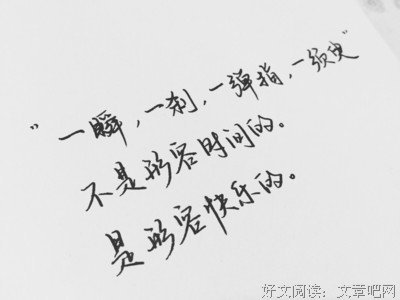 “一瞬，一刹，一弹指，一须臾”
不是形容时间的。
是形容快乐的。
好文阅读：文章吧网